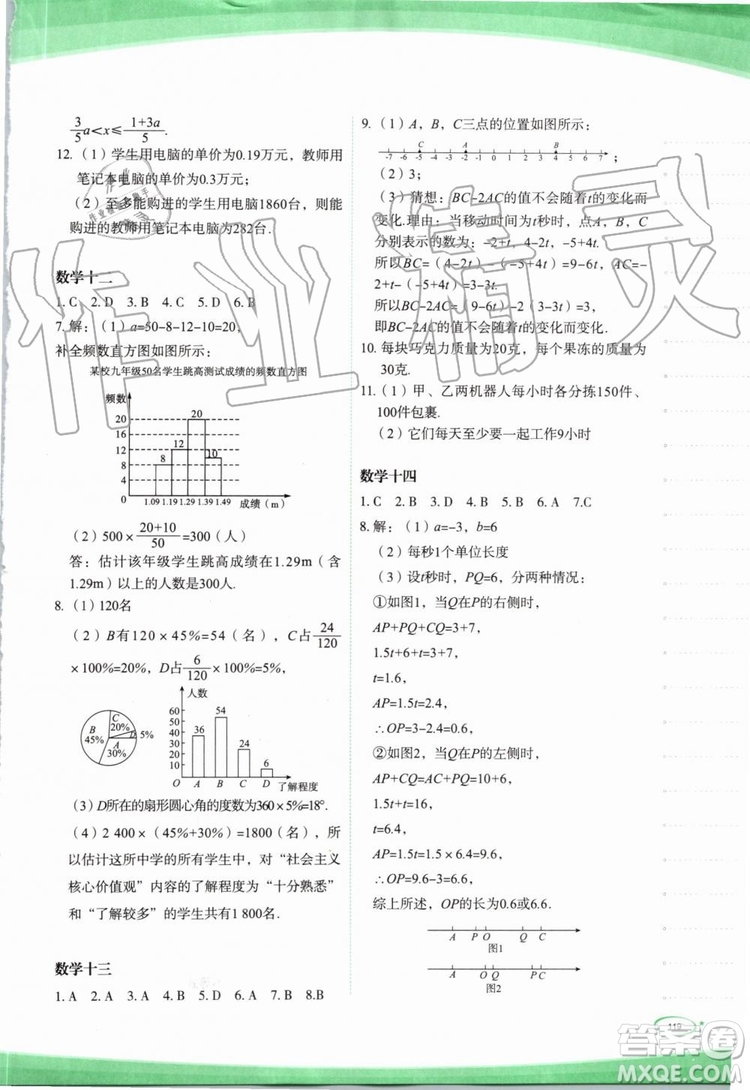 3/5 a<x≤(1+3a)/5.
12.（1）学生用电脑的单价为0.19万元，教师用
笔记本电脑的单价为0.3万元；
（2）至多能购进的学生用电脑1860台，则能
购进的教师用笔记本电脑为282台.
数学十二
1. C 2. D 3. B 4. C 5. D 6. B
7. 解：（1）a=50-8-12-10=20，
补全频数直方图如图所示：
某校九年级50名学生跳高测试成绩的频数直方图
频数
20
18
16
14
12
10
8
6
4
2
0
8 12 20 10
1.09 1.19 1.29 1.39 1.49 成绩（m）
（2）500×(20+10)/50=300（人）
答：估计该年级学生跳高成绩在1.29m（含
1.29m）以上的人数是300人.
8.（1）120名
（2）B有120×45%=54（名），C占24/120
×100%=20%，D占6/120×100%=5%，
C 20%
D 5%
B 45%
A 30%
人数
60
50
40
30
20
10
36 54 24 6
O A B C D 了解程度
（3）D所在的扇形圆心角的度数为360×5%=18°.
（4）2 400×（45%+30%）=1800（名），所
以估计这所中学的所有学生中，对“社会主义
核心价值观”内容的了解程度为“十分熟悉”
和“了解较多”的学生共有1 800名.
数学十三
1. A 2. A 3. A 4. B 5. D 6. A 7. B 8.B
9.（1）A，B，C三点的位置如图所示：
-7 -6 -5 -4 -3 -2 -1 0 1 2 3 4 5 6 7 ；
（2）3；
（3）猜想：BC-2AC的值不会随着t的变化而
变化.理由：当移动时间为t秒时，点A，B，C
分别表示的数为：-2+t，4-2t，-5+4t.
所以BC=（4-2t）-（-5+4t）=9-6t，AC=
-2+t-（-5+4t）=3-3t.
所以BC-2AC=（9-6t）-2（3-3t）=3，
即BC-2AC的值不会随着t的变化而变化.
10. 每块巧克力质量为20克，每个果冻的质量为
30克.
11.（1）甲、乙两机器人每小时各分拣150件、
100件包裹.
（2）它们每天至少要一起工作9小时
数学十四
1. C 2. B 3. D 4. B 5. C 6. A 7.C
8. 解：（1）a=-3，b=6
（2）每秒1个单位长度
（3）设t秒时，PQ=6，分两种情况：
①如图1，当Q在P的右侧时，
AP+PQ+CQ=3+7，
1.5t+6+t=3+7，
t=1.6，
AP=1.5t=2.4，
∴OP=3-2.4=0.6.
②如图2，当Q在P的左侧时，
AP+CQ=AC+PQ=10+6，
1.5t+t=16，
t=6.4，
AP=1.5t=1.5×6.4=9.6，
∴OP=9.6-3=6.6.
综上所述，OP的长为0.6或6.6.
A P O Q C
图1
A O Q P C
图2
119
作业精灵
答案圈
MXQE.COM